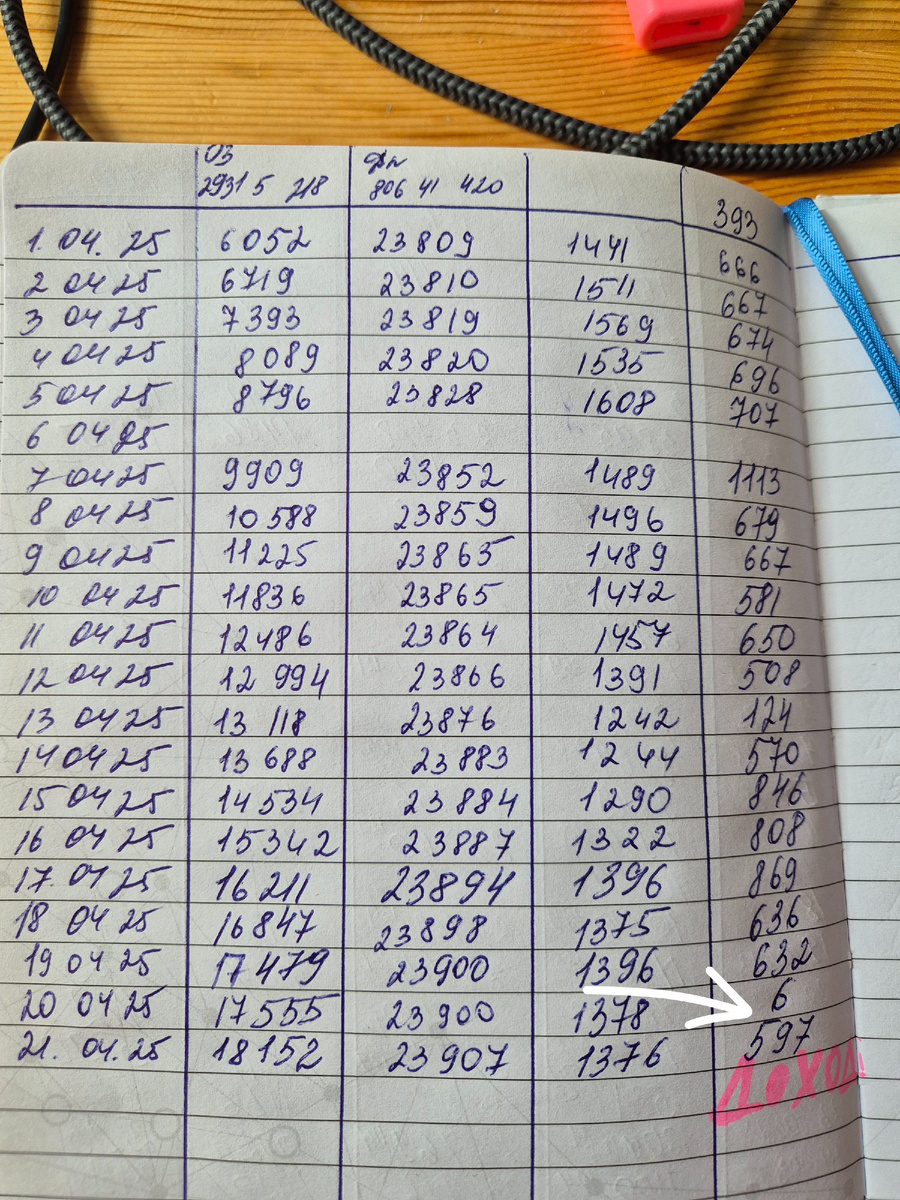 ОЗ Фл
29315 218 806 41 420
393
1. 04. 25 6052 23809 1441 666
2 04 25 6719 23810 1511 667
3 04 25 7393 23819 1569 674
4 04 25 8089 23820 1535 696
5 04 25 8796 23828 1608 707
6 04 25
7 04 25 9909 23852 1489 1113
8 04 25 10588 23859 1496 679
9 04 25 11225 23865 1489 667
10 04 25 11836 23865 1472 581
11 04 25 12486 23864 1457 650
12 04 25 12994 23866 1391 508
13 04 25 13118 23876 1242 124
14 04 25 13688 23883 1244 570
15 04 25 14534 23884 1290 846
16 04 25 15342 23887 1322 808
17. 04 25 16211 23894 1396 869
18 04 25 16847 23898 1375 636
19 04 25 17479 23900 1396 632
20 04 25 17555 23900 1378 6
21. 04. 25 18152 23907 1376 597
Доход!